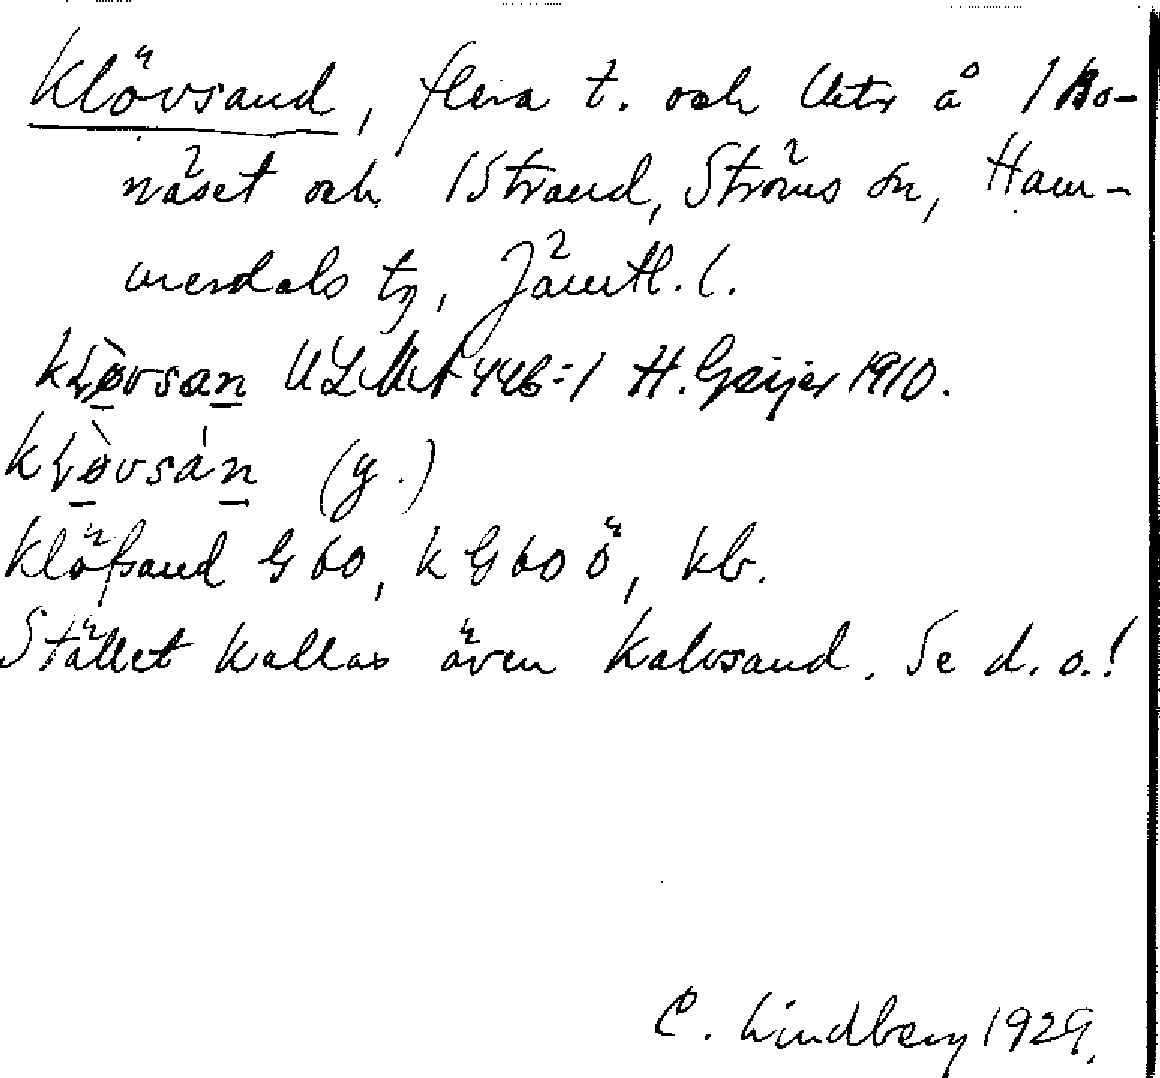 Klövsand, flera t. och lhtr å /Bo-
näset och /Strand, Ströms sn, Ham-
merdals tg, Jämtl. l.
kḷøvsan ULMA 446:1 H. Geijer 1910.
kḷøvsan (y.)
Klöfsand G 60, k G 60 ö, kb.
Stället kallas även Kalvsand. Se d. o.!
C. Lindberg 1929.